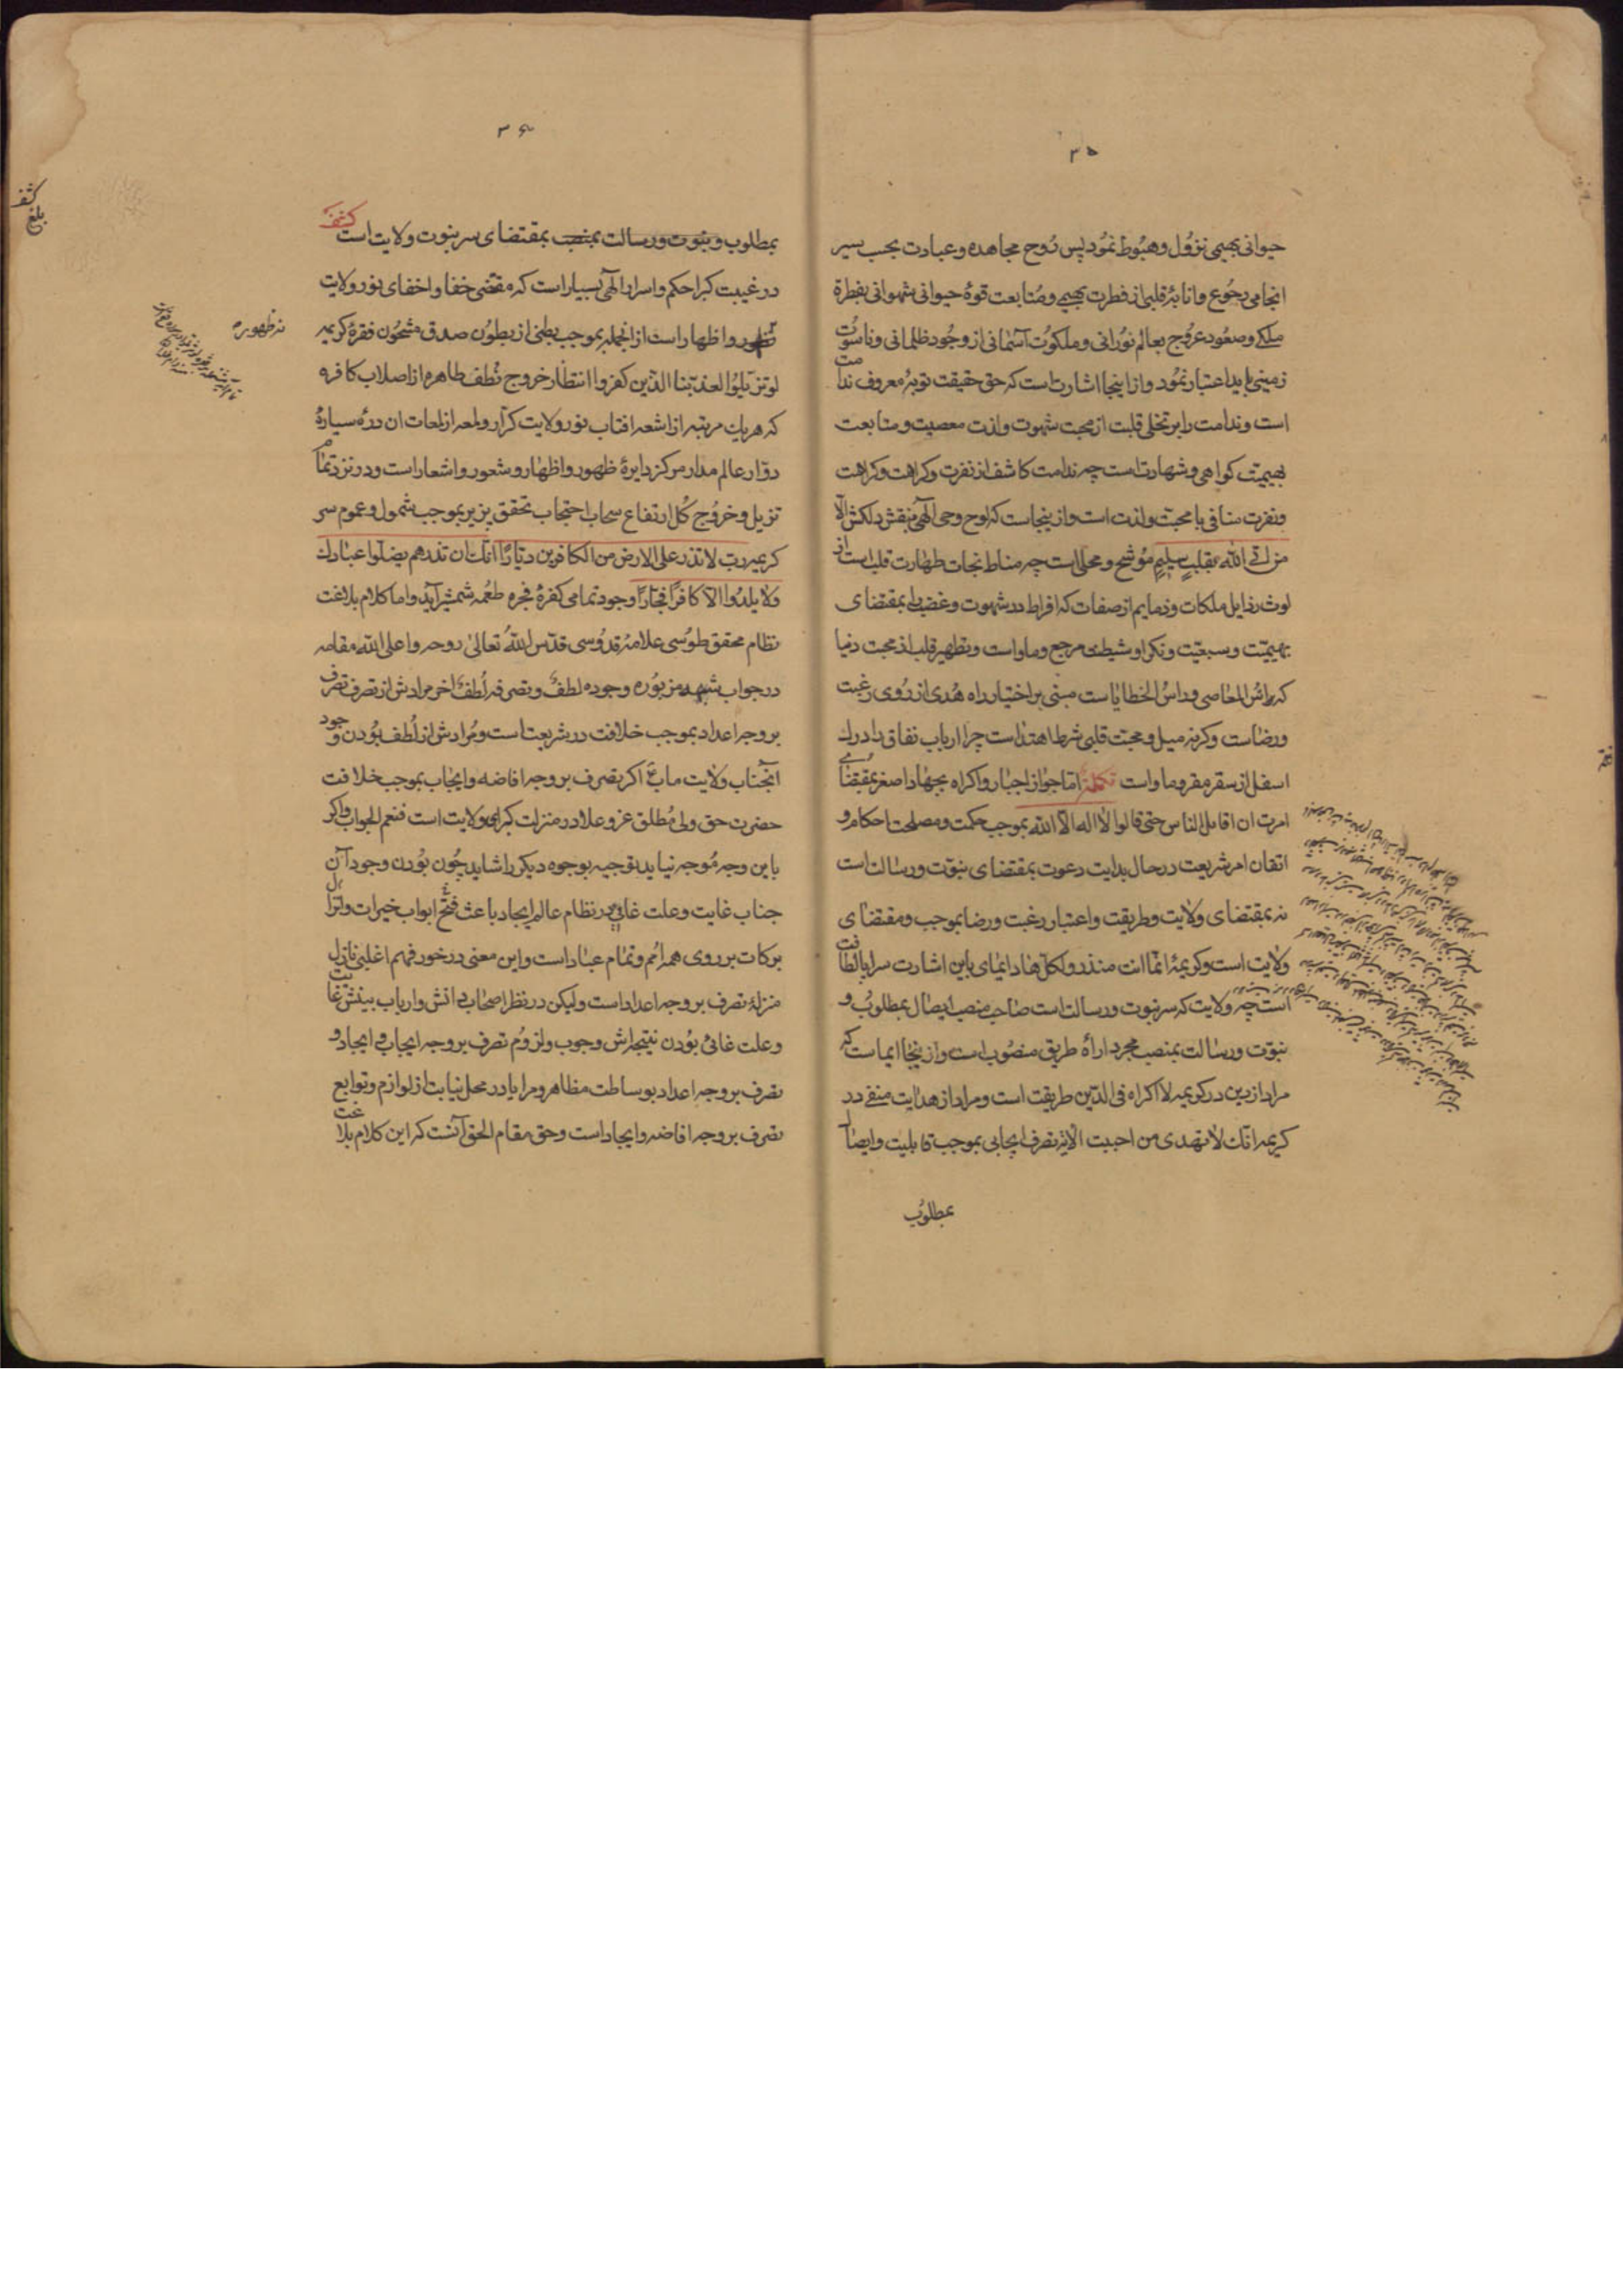 ۳۵
حیوانی بهیمی نزول و هبوط نمود پس روح مجاهده و عبادت بحسب سیر
انجامی رجوع و انابهٔ قلبی از فطرت بهیمی و متابعت قوهٔ حیوانی شهوانی بفطرة
ملکی و صعود و عروج بعالم نورانی و ملکوت آسمانی از وجود ظلمانی و ناسوت
زمینی باید اعتبار نمود و از اینجا اشارت است که حق حقیقت توبهٔ معروف ندامت
است و ندامت را بر تخلی قلبت از محبت شهوت و لذت معصیت و متابعت
بهیمیّت کواهی و شهادت است چه ندامت کاشف از نفرت و کراهت و کراهت
و نفرت منافی با محبت و لذت است و از ینجاست که لوح وحی آلهی بنقش دلکش الا
من اتی الله بقلب سلیم مُوشح و محلی است چه مناط نجات طهارت قلب است از
لوث رذایل ملکات و ذمایم از صفات که افراط در شهوت و غضب را بمقتضای
بهیمیّت و سبعیّت و نکرا و شیطنت مرجع و ماواست و تطهیر قلب از محبت دنیا
که راس المعاصی و راس الخطایاست مبنی بر اختیار راه هُدی از روی رغبت
و رضاست و کرنه میل و محبت قلبی شرط اهتداست چرا ارباب نفاق را درک
اسفل از سقر مقر و ماواست تکملة اما جواز اجبار و اکراه بجهاد اصغر بمقتضای
امرت ان اقاتل الناس حتی قالوا لا اله الا الله بموجب حکمت و مصلحت احکام و
اتقان امر شریعت در حال بدایت دعوت بمقتضای نبوّت و رسالت است
نه بمقتضای ولایت و طریقت و اعتبار رغبت و رضا بموجب و مقتضای
ولایت است و کریمهٔ انّما انت منذر و لکل هاد ایمای باین اشارت سراپا لطافت
است چه ولایت که سر نبوت و رسالت است صاحب منصب ایصال بمطلوب و
نبوّت و رسالت بمنصب مجرد اراهٔ طریق منصوب است و از ینجا ایماست که
مراد از دین در کریمه لا اکراه فی الدّین طریقت است و مراد از هدایت منفی در
کریمه انّک لا تهدی من احببت الآیه تصرف ایجابی بموجب قابلیت و ایصال
بمطلوب
۳۶
بمطلوب و نبوت و رسالت بمنصب بمقتضای سر نبوت و ولایت است کشف
در غیبت کبرا حکم و اسرار آلهی بسیار است که مقتضی خفا و اخفای نور ولایت
ظهور و اظهار است از انجمله بموجب بطنی از بطون صدق مشحون فقرهٔ کریمه
لو تزیّلوا لعذّبنا الذین کفروا انتظار خروج نُطف طاهره از اصلاب کافره
که هر یک مرتبه از اشعه افتاب نور ولایت کرّار و لمعه از لمعات ان درهٔ سیارهٔ
دوّار عالم مدار مرکز دایرهٔ ظهور و اظهار و شعور و اشعار است و در نزد تمام
تزیل و خروج کل ارتفاع سحاب احتجاب تحقق پزیر بموجب شمول و عموم سر
کریمه رب لا تذر علی الارض من الکافرین دیّارًا انک ان تذرهم یضلّوا عبادک
و لا یلدوا الا کافرًا فجّارًا وجود تمامی کفرهٔ فجره طعمه شمشیر آید و اما کلام بلاغت
نظام محقق طوسی علامهٔ قدوسی قدّس الله تعالی روحه و اعلی الله مقامه
در جواب شبهه مزبوره وجوده لطف و تصرفه لُطف اخر مرادش از تصرف تصرف
بر وجه اعداد بموجب خلافت در شریعت است و مُرادش از لُطف بودن وجود
آنجناب ولایت ماب ع اکر تصرف بر وجه افاضه و ایجاب بموجب خلافت
حضرت حق ولی مُطلق عز و علا در منزلت کبرای ولایت است فنعم الجواب و اکر
باین وجه مُوجه نیاید توجیه بوجوه دیکر را شاید چون بودن وجود آن
جناب غایت و علت غائی در نظام عالم ایجاد باعث فتح ابواب خیرات و انزال
برکات بر روی همه امم و تمام عباد است و این معنی در خور فهم اغلبی نازل
منزلهٔ تصرف بر وجه اعداد است و لیکن در نظر اصحاب دانش و ارباب بینش غایت
و علت غائی بودن نتیجه‌اش وجوب و لزوم تصرف بر وجه ایجاب و ایجاد و
تصرف بر وجه اعداد بوساطت مظاهر و مرایا در محل نیابت از لوازم و توابع
تصرف بر وجه افاضه و ایجاد است و حق مقام الحق آنست که این کلام بلاغت
نه ظهوره
کشف
بلغ